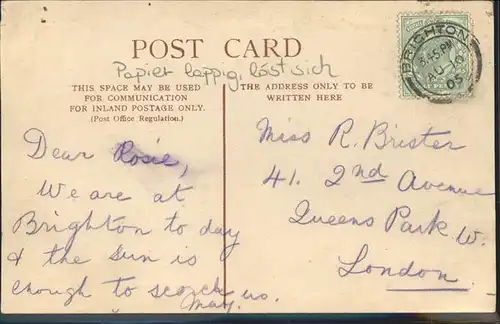 POST CARD
Papier lappig, löst sich
THIS SPACE MAY BE USED
FOR COMMUNICATION
FOR INLAND POSTAGE ONLY.
(Post Office Regulation.)
THE ADDRESS ONLY TO BE
WRITTEN HERE
BRIGHTON
3.45 PM
AU 10
05
Dear Rosie,
We are at
Brighton to day
& the sun is
enough to scorch us.
May.
Miss R. Brister
41. 2nd Avenue
Queens Park W.
London.